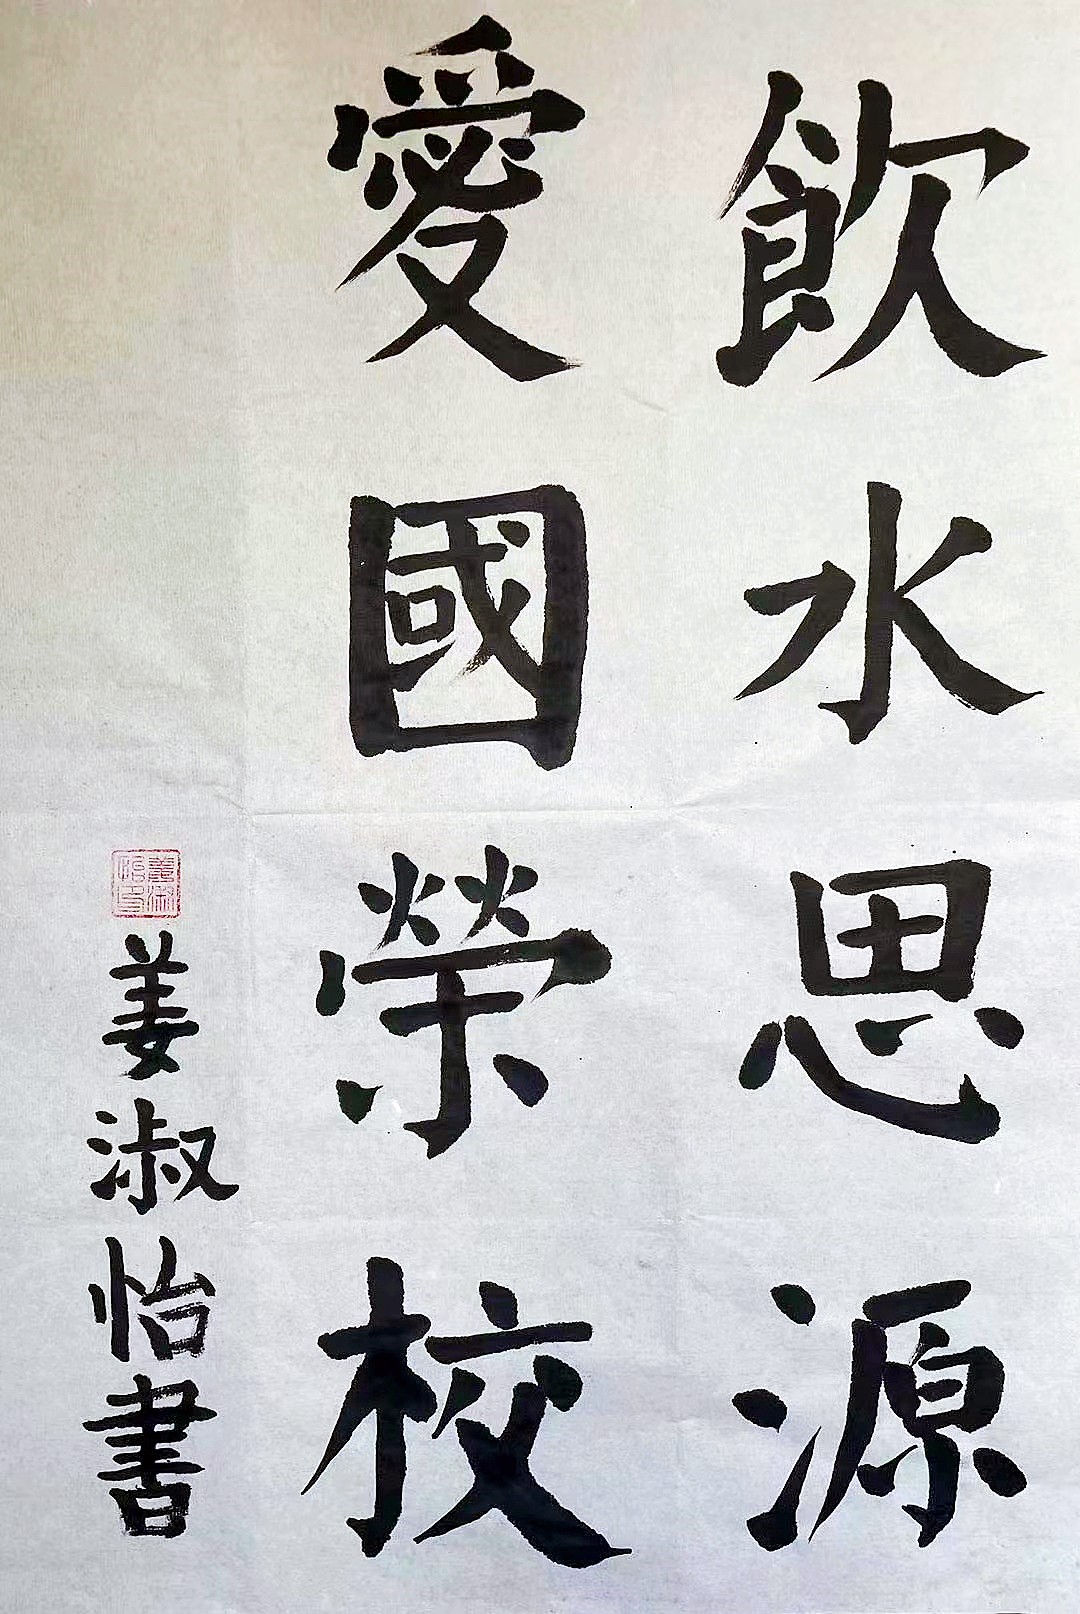 飲水思源
愛國榮校
姜淑怡書